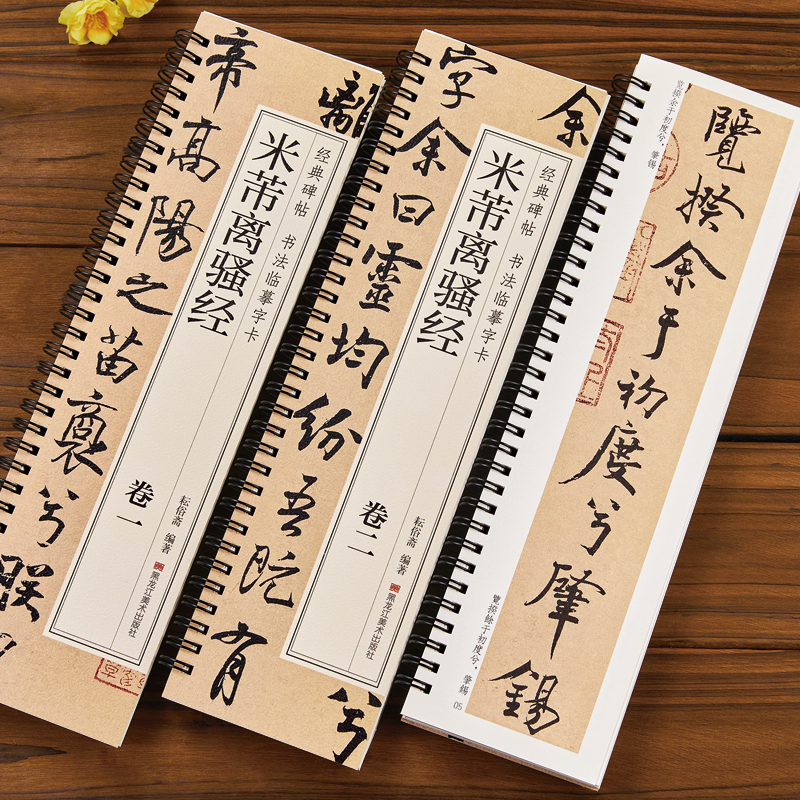 離
经典碑帖 书法临摹字卡
米芾离骚经
卷一
耘俗斋 编著
黑龙江美术出版社
帝高陽之苗裔兮朕
余
兮
经典碑帖 书法临摹字卡
米芾离骚经
卷二
耘俗斋 编著
黑龙江美术出版社
字余曰靈均紛吾既有
览揆余于初度兮,肇锡
覽揆余于初度兮肇錫
覽揆餘于初度兮,肇錫
05